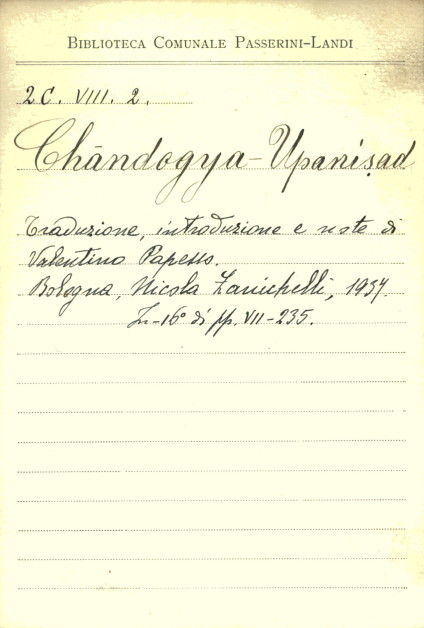 BIBLIOTECA COMUNALE PASSERINI-LANDI
2C. VIII. 2.
Chāndogya-Upaniṣad
Traduzione, introduzione e note di
Valentino Papesso.
Bologna, Nicola Zanichelli, 1937.
In-16° di pp. VII-235.